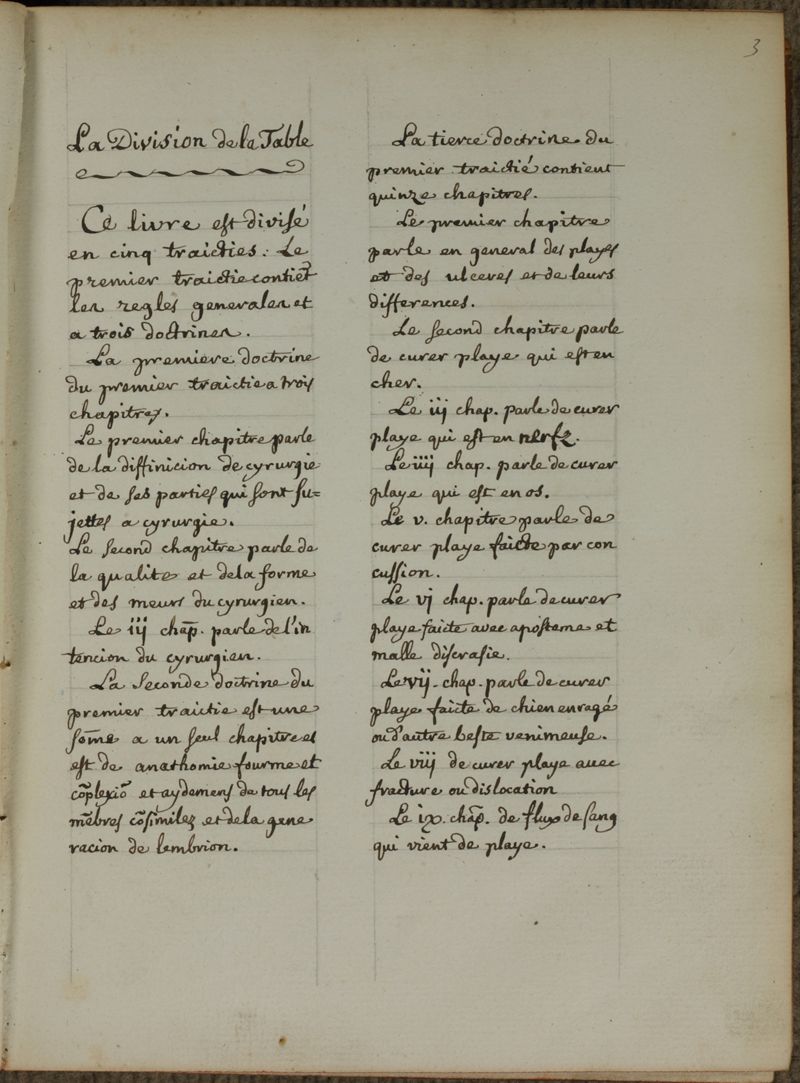 3
La Division de la Table
Ce livre est divisé
en cinq traicties. Le
premier traictie contiẽt
les regles generales et
a trois doctrines.
La premiere doctrine
du premier traictie a trois
chapitres.
Le premier chapitre parle
de la diffinicion de cyrurgie
et de ses parties qui sont su=
jettes a cyrurgie.
Le second chapitre parle de
la qualite et de la forme
et des meurs du cyrurgien.
Le iij chap̃. parle de l'in
tencion du cyrurgien.
La Seconde doctrine du
premier traictie est une
sõme a un seul chapitre et
est de anathomie fourme et
cõplexiõ et aydemens de tous les
mẽbres cõsimilez et de la gene
racion de lembrion.
La tierce doctrine du
premier traictié contient
quinze chapitres.
Le premier chapitre
parle en general des playes
et des ulceres et de leurs
differences.
Le second chapitre parle
de curer playe qui est en
cher.
Le iij chap. parle de curer
playe qui est en nerfz.
Le iiij chap. parle de curer
playe qui est en os.
Le v. chapitre parle de
curer playe faicte par con
cussion.
Le vj chap. parle de curer
playe faicte avec aposteme et
malle discrasie.
Le vij. chap. parle de curer
playe faicte de chien enragé
ou d'autre beste venimeuse.
Le viij de curer playe avec
fracture ou dislocation
Le ix. chap̃. de flux de sang
qui vient de playe.